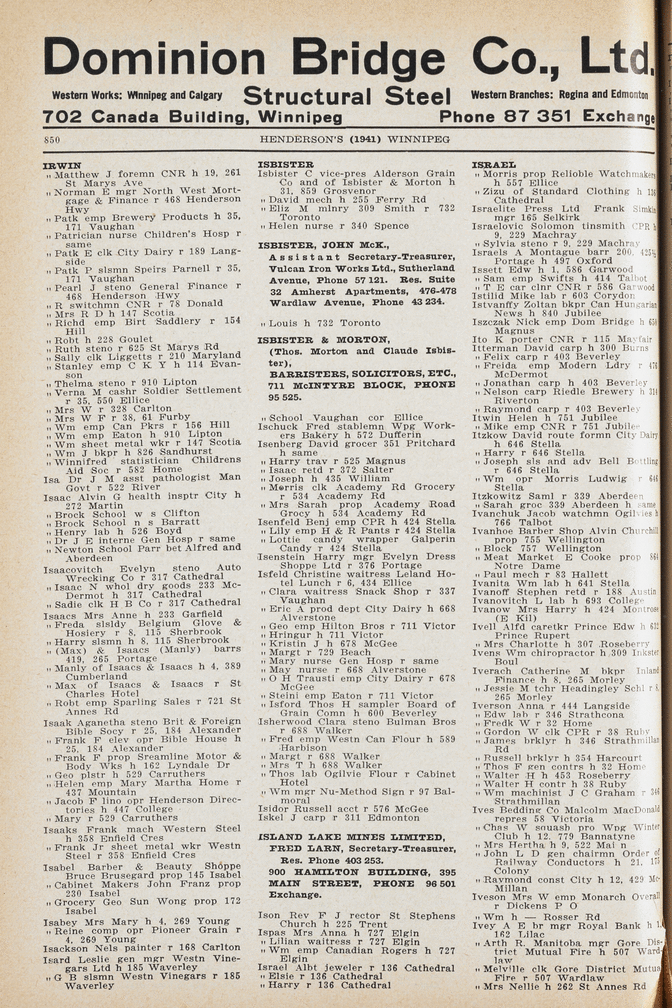 Dominion Bridge Co., Ltd.
Western Works: Winnipeg and Calgary Structural Steel Western Branches: Regina and Edmonton
702 Canada Building, Winnipeg Phone 87 351 Exchange
850 HENDERSON'S (1941) WINNIPEG
IRWIN
„ Matthew J foremn CNR h 19, 261
St Marys Ave
„ Norman E mgr North West Mort-
gage & Finance r 468 Henderson
Hwy
„ Patk emp Brewery Products h 35,
171 Vaughan
„ Patrician nurse Children's Hosp r
same
„ Patk E clk City Dairy r 189 Lang-
side
„ Patk P slsmn Speirs Parnell r 35,
171 Vaughan
„ Pearl J steno General Finance r
468 Henderson Hwy
„ R switchmn CNR r 78 Donald
„ Mrs R D h 147 Scotia
„ Richd emp Birt Saddlery r 154
Hill
„ Robt h 228 Goulet
„ Ruth steno r 625 St Marys Rd
„ Sally clk Liggetts r 210 Maryland
„ Stanley emp C K Y h 114 Evan-
son
„ Thelma steno r 910 Lipton
„ Verna M cashr Soldier Settlement
r 35, 550 Ellice
„ Mrs W r 328 Carlton
„ Mrs W F r 38, 61 Furby
„ Wm emp Can Pkrs r 156 Hill
„ Wm emp Eaton h 910 Lipton
„ Wm sheet metal wkr r 147 Scotia
„ Wm J bkpr h 826 Sandhurst
„ Winnifred statistician Childrens
Aid Soc r 582 Home
Isa Dr J M asst pathologist Man
Govt r 522 River
Isaac Alvin G health insptr City h
272 Martin
„ Brock School w s Clifton
„ Brock School n s Barratt
„ Henry lab h 526 Boyd
„ Dr J E interne Gen Hosp r same
„ Newton School Parr bet Alfred and
Aberdeen
Isaacovitch Evelyn steno Auto
Wrecking Co r 317 Cathedral
„ Isaac N whol dry goods 233 Mc-
Dermot h 317 Cathedral
„ Sadie clk H B Co r 317 Cathedral
Isaacs Mrs Anne h 233 Garfield
„ Freda slsldy Belgium Glove &
Hosiery r 8, 115 Sherbrook
„ Harry slsmn h 8, 115 Sherbrook
„ (Max) & Isaacs (Manly) barrs
419, 265 Portage
„ Manly of Isaacs & Isaacs h 4, 389
Cumberland
„ Max of Isaacs & Isaacs r St
Charles Hotel
„ Robt emp Sparling Sales r 721 St
Annes Rd
Isaak Aganetha steno Brit & Foreign
Bible Socy r 25, 184 Alexander
„ Frank F elev opr Bible House h
25, 184 Alexander
„ Frank P prop Sreamline Motor &
Body Wks h 162 Lyndale Dr
„ Geo plstr h 529 Carruthers
„ Helen emp Mary Martha Home r
437 Mountain
„ Jacob F lino opr Henderson Direc-
tories h 447 College
„ Mary r 529 Carruthers
Isaaks Frank mach Western Steel
h 358 Enfield Cres
„ Frank Jr sheet metal wkr Westn
Steel r 358 Enfield Cres
Isabel Barber & Beauty Shoppe
Bruce Brusegard prop 145 Isabel
„ Cabinet Makers John Franz prop
230 Isabel
„ Grocery Geo Sun Wong prop 172
Isabel
Isabey Mrs Mary h 4, 269 Young
„ Reine comp opr Pioneer Grain r
4, 269 Young
Isackson Nels painter r 168 Carlton
Isard Leslie gen mgr Westn Vine-
gars Ltd h 185 Waverley
„ G B slsmn Westn Vinegars r 185
Waverley
ISBISTER
Isbister C vice-pres Alderson Grain
Co and of Isbister & Morton h
31, 859 Grosvenor
„ David mech h 255 Ferry Rd
„ Eliz M mlnry 309 Smith r 732
Toronto
„ Helen nurse r 340 Spence
ISBISTER, JOHN McK.,
Assistant Secretary-Treasurer,
Vulcan Iron Works Ltd., Sutherland
Avenue, Phone 57 121. Res. Suite
32 Amherst Apartments, 476-478
Wardlaw Avenue, Phone 43 234.
„ Louis h 732 Toronto
ISBISTER & MORTON,
(Thos. Morton and Claude Isbis-
ter),
BARRISTERS, SOLICITORS, ETC.,
711 McINTYRE BLOCK, PHONE
95 525.
„ School Vaughan cor Ellice
Ischuck Fred stablemn Wpg Work-
ers Bakery h 572 Dufferin
Isenberg David grocer 351 Pritchard
h same
„ Harry trav r 525 Magnus
„ Isaac retd r 372 Salter
„ Joseph h 435 William
„ Morris clk Academy Rd Grocery
r 534 Academy Rd
„ Mrs Sarah prop Academy Road
Grocy h 534 Academy Rd
Isenfeld Benj emp CPR h 424 Stella
„ Lily emp H & R Pants r 424 Stella
„ Lottie candy wrapper Galperin
Candy r 424 Stella
Isenstein Harry mgr Evelyn Dress
Shoppe Ltd r 376 Portage
Isfeld Christine waitress Leland Ho-
tel Lunch r 6, 434 Ellice
„ Clara waitress Snack Shop r 337
Vaughan
„ Eric A prod dept City Dairy h 668
Alverstone
„ Geo emp Hilton Bros r 711 Victor
„ Hringur h 711 Victor
„ Kristin J h 678 McGee
„ Margt r 729 Beach
„ Mary nurse Gen Hosp r same
„ May nurse r 668 Alverstone
„ O H Trausti emp City Dairy r 678
McGee
„ Steini emp Eaton r 711 Victor
„ Isford Thos H sampler Board of
Grain Comn h 600 Beverley
Isherwood Clara steno Bulman Bros
r 688 Walker
„ Fred emp Westn Can Flour h 589
Harbison
„ Margt r 688 Walker
„ Mrs T h 688 Walker
„ Thos lab Ogilvie Flour r Cabinet
Hotel
„ Wm mgr Nu-Method Sign r 97 Bal-
moral
Isidor Russell acct r 576 McGee
Iskel J carp r 311 Edmonton
ISLAND LAKE MINES LIMITED,
FRED LARN, Secretary-Treasurer,
Res. Phone 403 253.
900 HAMILTON BUILDING, 395
MAIN STREET, PHONE 96 501
Exchange.
Ison Rev F J rector St Stephens
Church h 225 Trent
Ispas Mrs Anna h 727 Elgin
„ Lilian waitress r 727 Elgin
„ Wm emp Canadian Rogers h 727
Elgin
Israel Albt jeweler r 136 Cathedral
„ Elsie r 136 Cathedral
„ Harry r 136 Cathedral
ISRAEL
„ Morris prop Relioble Watchmakers
h 557 Ellice
„ Zizu of Standard Clothing h 136
Cathedral
Israelite Press Ltd Frank Simkin
mgr 165 Selkirk
Israelovic Solomon tinsmith CPR h
9, 229 Machray
„ Sylvia steno r 9, 229 Machray
Israels A Montague barr 200, 425½
Portage h 497 Oxford
Issett Edw h 1, 586 Garwood
„ Sam emp Swifts h 414 Talbot
„ T E car clnr CNR r 586 Garwood
Istilid Mike lab r 603 Corydon
Istvanffy Zoltan bkpr Can Hungarian
News h 840 Jubilee
Iszczak Nick emp Dom Bridge h
Magnus
Ito K porter CNR r 115 Mayfair
Itterman David carp h 300 Burns
„ Felix carp r 403 Beverley
„ Freida emp Modern Ldry r 476
McDermot
„ Jonathan carp h 403 Beverley
„ Nelson carp Riedle Brewery h 314
Riverton
„ Raymond carp r 403 Beverley
Itwin Helen h 751 Jubilee
„ Mike emp CNR r 751 Jubilee
Itzkow David route formn City Dairy
h 646 Stella
„ Harry r 646 Stella
„ Joseph sls and adv Bell Bottling
r 646 Stella
„ Wm opr Morris Ludwig r 646
Stella
Itzkowitz Saml r 339 Aberdeen
„ Sarah groc 339 Aberdeen h same
Ivanchuk Jacob watchmn Ogilvies h
766 Talbot
Ivanhoe Barber Shop Alvin Churchill
prop 755 Wellington
„ Block 757 Wellington
„ Meat Market E Cooke prop
Notre Dame
„ Paul mech r 83 Hallett
Ivanita Wm lab h 641 Stella
Ivanoff Stephen retd r 188 Austin
Ivanovitch L lab h 693 College
Ivanow Mrs Harry h 424 Montrose
(E Kil)
Ivell Alfd caretkr Prince Edw h
Prince Rupert
„ Mrs Charlotte h 307 Roseberry
Ivens Wm chiropractor h 309 Inkster
Boul
Iverach Catherine M bkpr Inland
Finance h 8, 265 Morley
„ Jessie M tchr Headingley Schl r
265 Morley
Iverson Anna r 444 Langside
„ Edw lab r 346 Strathcona
„ Fredk W r 32 Home
„ Gordon W clk CPR r 38 Ruby
„ James brklyr h 346 Strathmillan
Rd
„ Russel brklyr h 354 Harcourt
„ Thos F gen contrs h 32 Home
„ Walter H h 453 Roseberry
„ Walter H contr h 38 Ruby
„ Wm machinist J C Graham r 346
Strathmillan
Ives Bedding Co Malcolm MacDonald
repres 58 Victoria
„ Chas W squash pro Wng Winter
Club h 12, 779 Bannatyne
„ Mrs Hertha h 9, 522 Main
„ John L D gen chairmn Order of
Railway Conductors h 21,
Colony
„ Raymond const City h 12, 429 Mc-
Millan
Iveson Mrs W emp Monarch Overall
r Dickens P O
„ Wm h — Rosser Rd
Ivey A E br mgr Royal Bank h
162 Lilac
„ Arth R. Manitoba mgr Gore Dis-
trict Mutual Fire h 507 Ward-
law
„ Melville clk Gore District Mutual
Fire r 507 Wardlaw
„ Mrs Nellie h 262 St Annes Rd